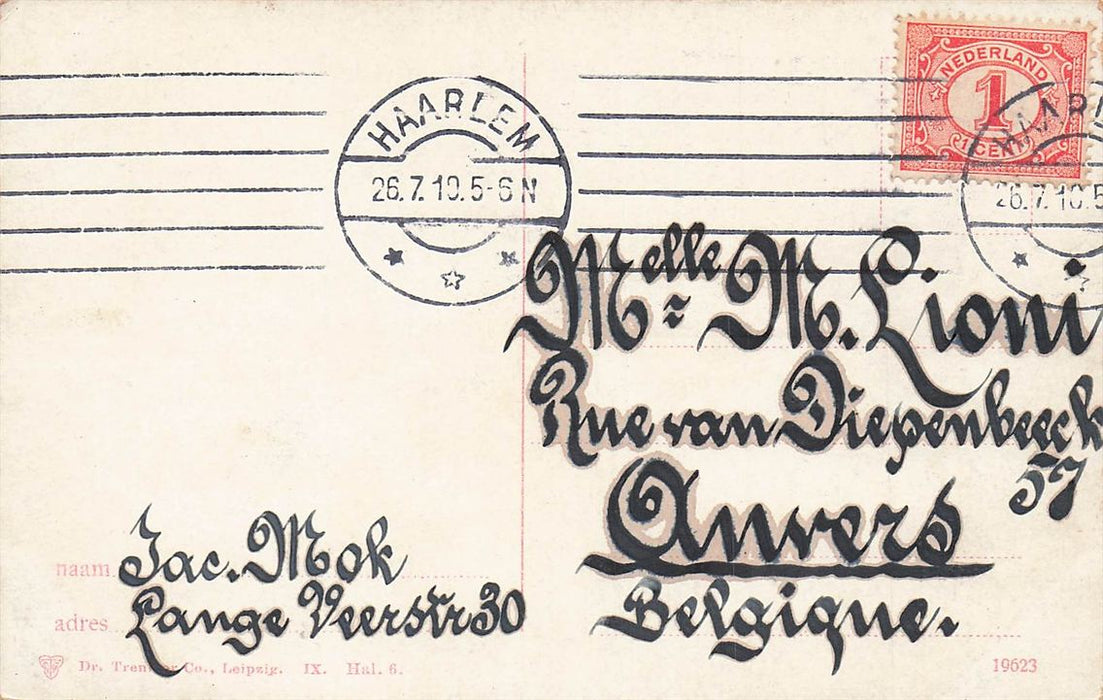 NEDERLAND
1
1 CENT
HAARLEM
26.7.10.5-6 N
HAARL
26.7.10.5
Melle M. Lioni
Rue van Diepenbeeck
57
Anvers
Belgique.
naam Jac. Mok
adres Lange Veerstr 30
Dr. Trenkler Co., Leipzig. IX. Hal. 6.
19623